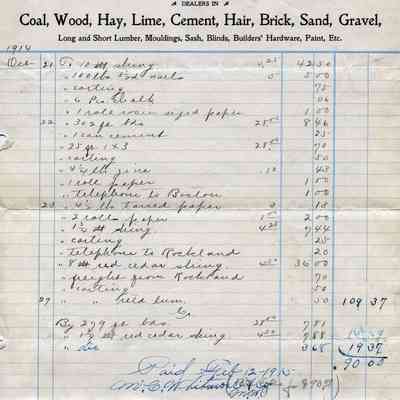 DEALERS IN
Coal, Wood, Hay, Lime, Cement, Hair, Brick, Sand, Gravel,
Long and Short Lumber, Mouldings, Sash, Blinds, Builders' Hardware, Paint, Etc.
1914
Oct 21 To 10 M shing 4.25 42 50
" 100 lbs nails 5 00
" carting 75
" 6 Pcs chalk 06
" 1 roll rosin sized paper 1 00
22 " 302 ft bds 28.00 8 46
" 1 can cement 25
" 25 ft 1 x 3 28.00 70
" carting 50
" 4 1/2 lb zinc 10 45
" 1 roll paper 1 00
" telephone to Boston 1 00
23 " 4 1/2 lb tarred paper 18
" 2 rolls paper 1.00 2 00
" shing. 4.25 7 44
" carting 25
" telephone to Rockland 20
" 8 M red cedar shing. 4.50 36 00
" freight from Rockland 70
" carting 50
27 " " lum. 50 109 37
Cr
By 279 ft bds 28.00 7 81
" red cedar shing 4.50 7 88
" 3 68 19 37
90 00
Paid Feb 12 - 1915